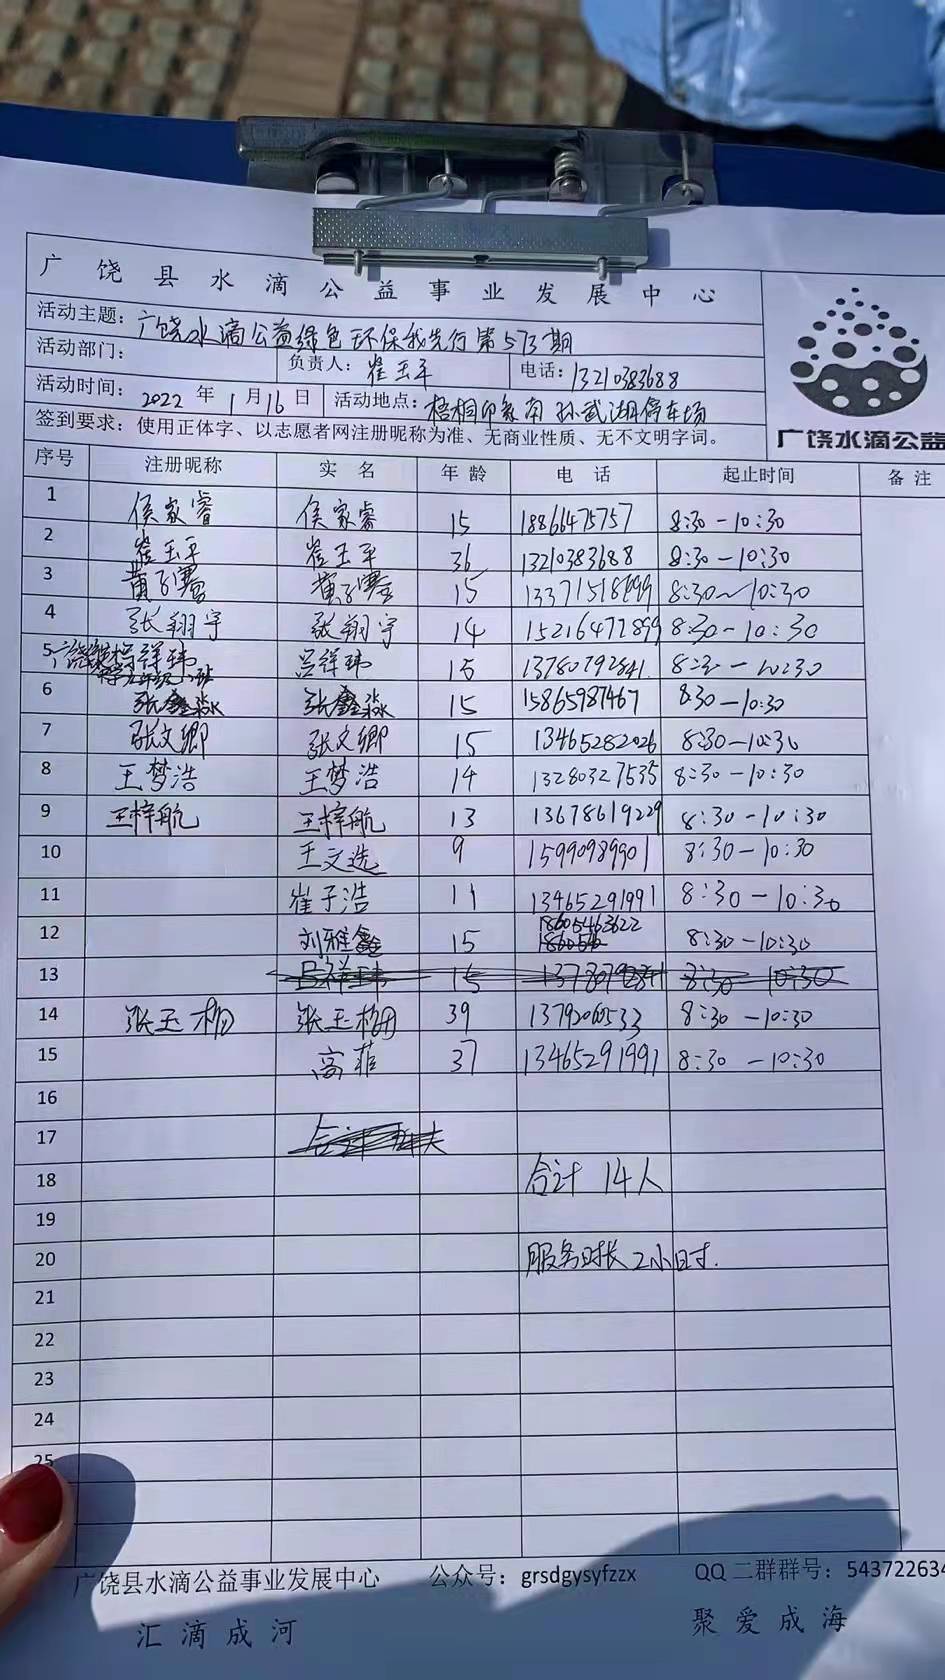 广饶县水滴公益事业发展中心
活动主题：广饶水滴公益绿色环保我先行第573期
活动部门： 负责人：崔玉平 电话：13210383688
活动时间：2022年1月16日 活动地点：梧桐印象南孙武湖停车场
签到要求：使用正体字、以志愿者网注册昵称为准、无商业性质、无不文明字词。
广饶水滴公益
序号 注册昵称 实名 年龄 电话 起止时间 备注
1 侯家睿 侯家睿 15 18866475757 8:30-10:30
2 崔玉平 崔玉平 36 13210383688 8:30-10:30
3 黄子骞 黄子骞 15 8:30~10:30
4 张翔宇 张翔宇 14 15216472899 8:30-10:30
5 吕祥玮 吕祥玮 15 13780792841. 8:30-10:30
6 张鑫淼 张鑫淼 15 15865987467 8:30-10:30
7 张文卿 张文卿 15 13465282026 8:30-10:30
8 王梦浩 王梦浩 14 13280327535 8:30-10:30
9 王梓航 王梓航 13 13678619229 8:30-10:30
10 王文选 9 15990989901 8:30-10:30
11 崔子浩 11 13465291991 8:30-10:30
12 刘雅鑫 15 18605463622 8:30-10:30
13 吕祥玮 15 13780792841 8:30-10:30
14 张玉梅 张玉梅 39 8:30-10:30
15 高菲 37 13465291991 8:30-10:30
16
17
18 合计 14人
19
20 服务时长2小时.
21
22
23
24
25
广饶县水滴公益事业发展中心 公众号：grsdgysyfzzx QQ二群群号：543722634
汇滴成河 聚爱成海